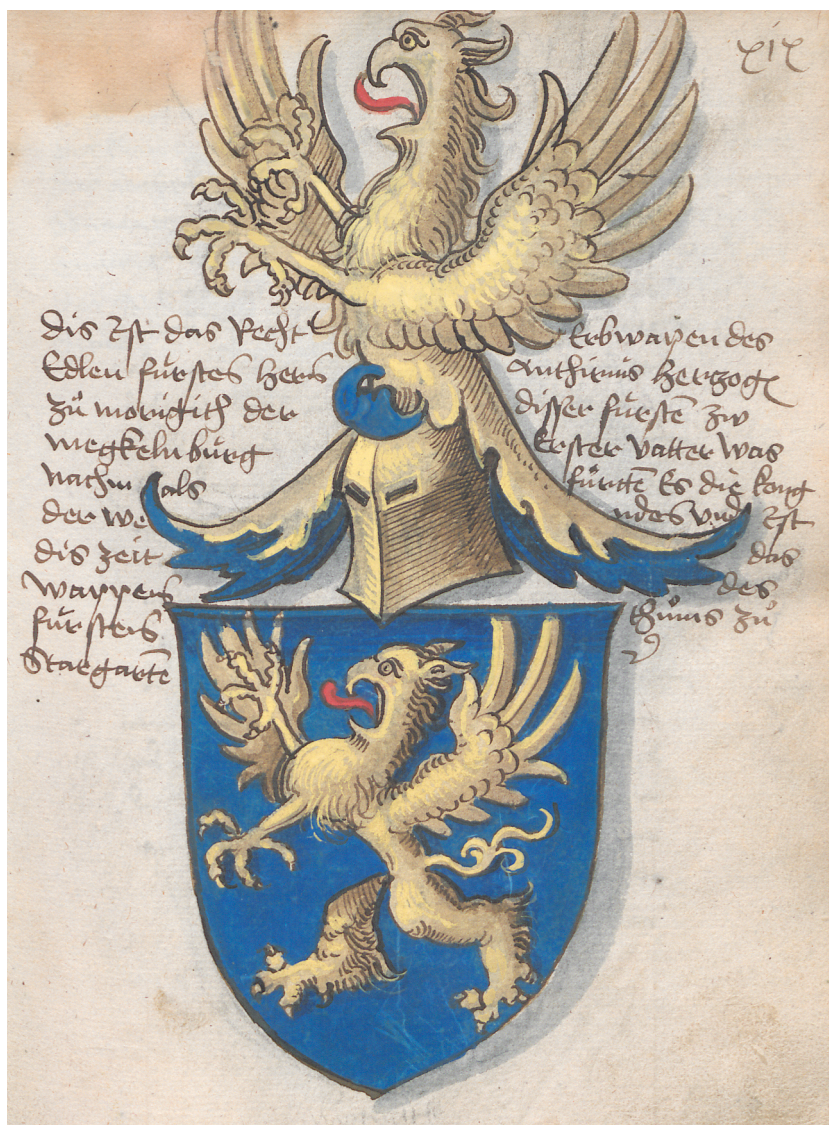 xix
dis Ist das Recht Erbwapen des
Edlen fürsten hern Anthirius herzog
zů morigith der disser fürsten zw
megkelnbürg Erster vatter was
nachm als fürtten Es die konig
der we ndes vnd Ist
dis zeit das
wappen des
fürstens thůms zů
Stargarten